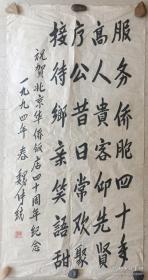 服务侨胞四十年
高人貴客仰先贤
公昔日常欢聚
接待鄉亲笑語甜
祝贺北京华侨饭店四十周年纪念
一九九四年春 魏传统